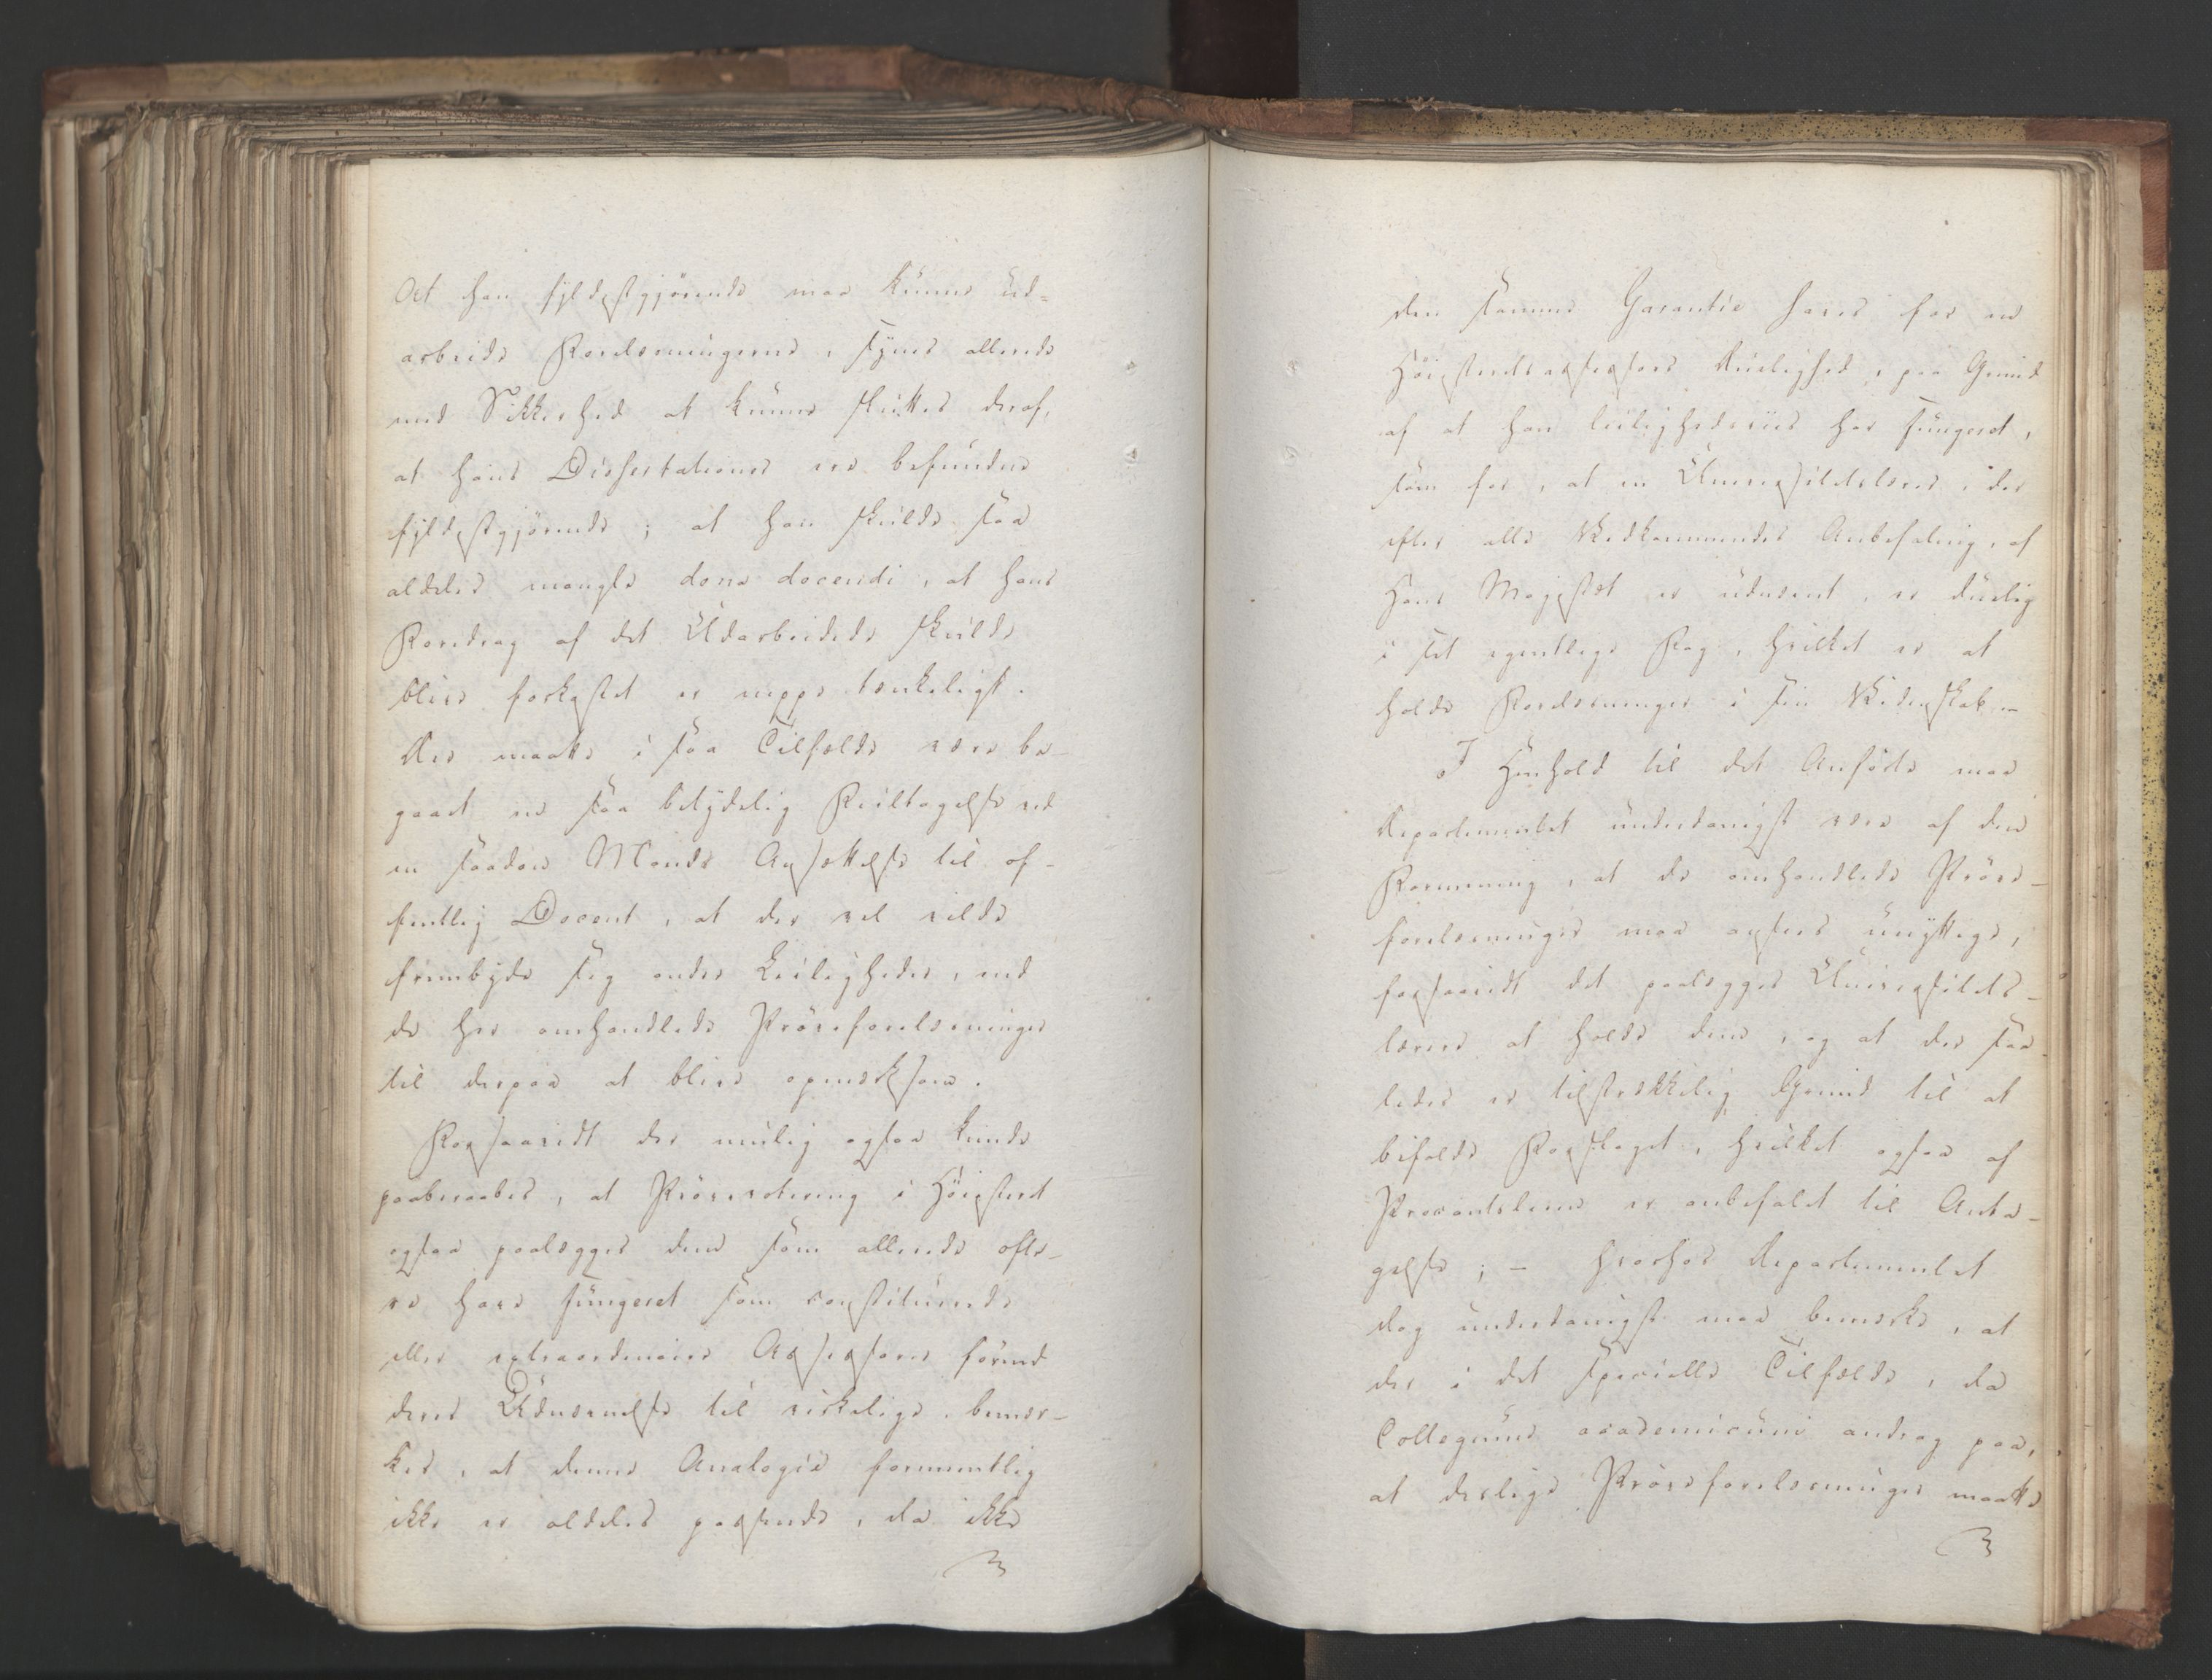 At han fyldestgjørende maa kunne ud-
arbeide Forelæsningerne, synes allerede
med Sikkerhed at kunne sluttes deraf,
at hans Dissertationer ere befundne
fyldestgjørende; at han skulde saa
aldeles mangle dona docendi, at hans
Foredrag af det Udarbeidede skulde
blive forkastet er neppe tænkeligt.
Der maatte i saa Tilfælde være be-
gaaet en saa betydelig Feiltagelse ved
en saadan Mands Ansættelse til of-
fentlig Docent, at der vel vilde
frembyde sig andre Leiligheder, end
de her omhandlede Prøveforelæsninger
til derpaa at blive opmærksom.
Forsaavidt der mulig ogsaa kunde
paaberaabes, at Prøvevotering i Høiesteret
ogsaa paalægges dem som allerede ofte-
re have fungeret som constituerede
eller extraordinaire Assessorer førend
deres Udnævnelse til virkelige, bemær-
kes, at denne Analogie formeentlig
ikke er aldeles passende, da ikke
den samme Garantie haves for en
Høiesteretsassessors Duelighed, paa Grund
af at han leilighedsviis har fungeret,
som for, at en Universitetslærer, der
efter alle Vedkommendes Anbefaling, af
Hans Majestæt er udnævnt, er duelig
i sit egentlige Fag, hvilket er at
holde Forelæsninger i sin Videnskab.-
I Henhold til det Anførte maa
Departementet underdanigst være af den
Formening, at de omhandlede Prøve-
forelæsninger maa ansees unyttige,
forsaavidt det paalægges Universitets-
lærere at holde dem, og at der saa-
ledes er tilstrækkelig Grund til at
bifalde Forslaget, hvilket ogsaa af
Procantsleren er anbefalet til Anta-
gelse; - hvorhos Departementet
dog underdanigst maa bemærke, at
der i det specielle Tilfælde, da
Collegium academicum androg paa,
at deslige Prøveforelæsninger maatte